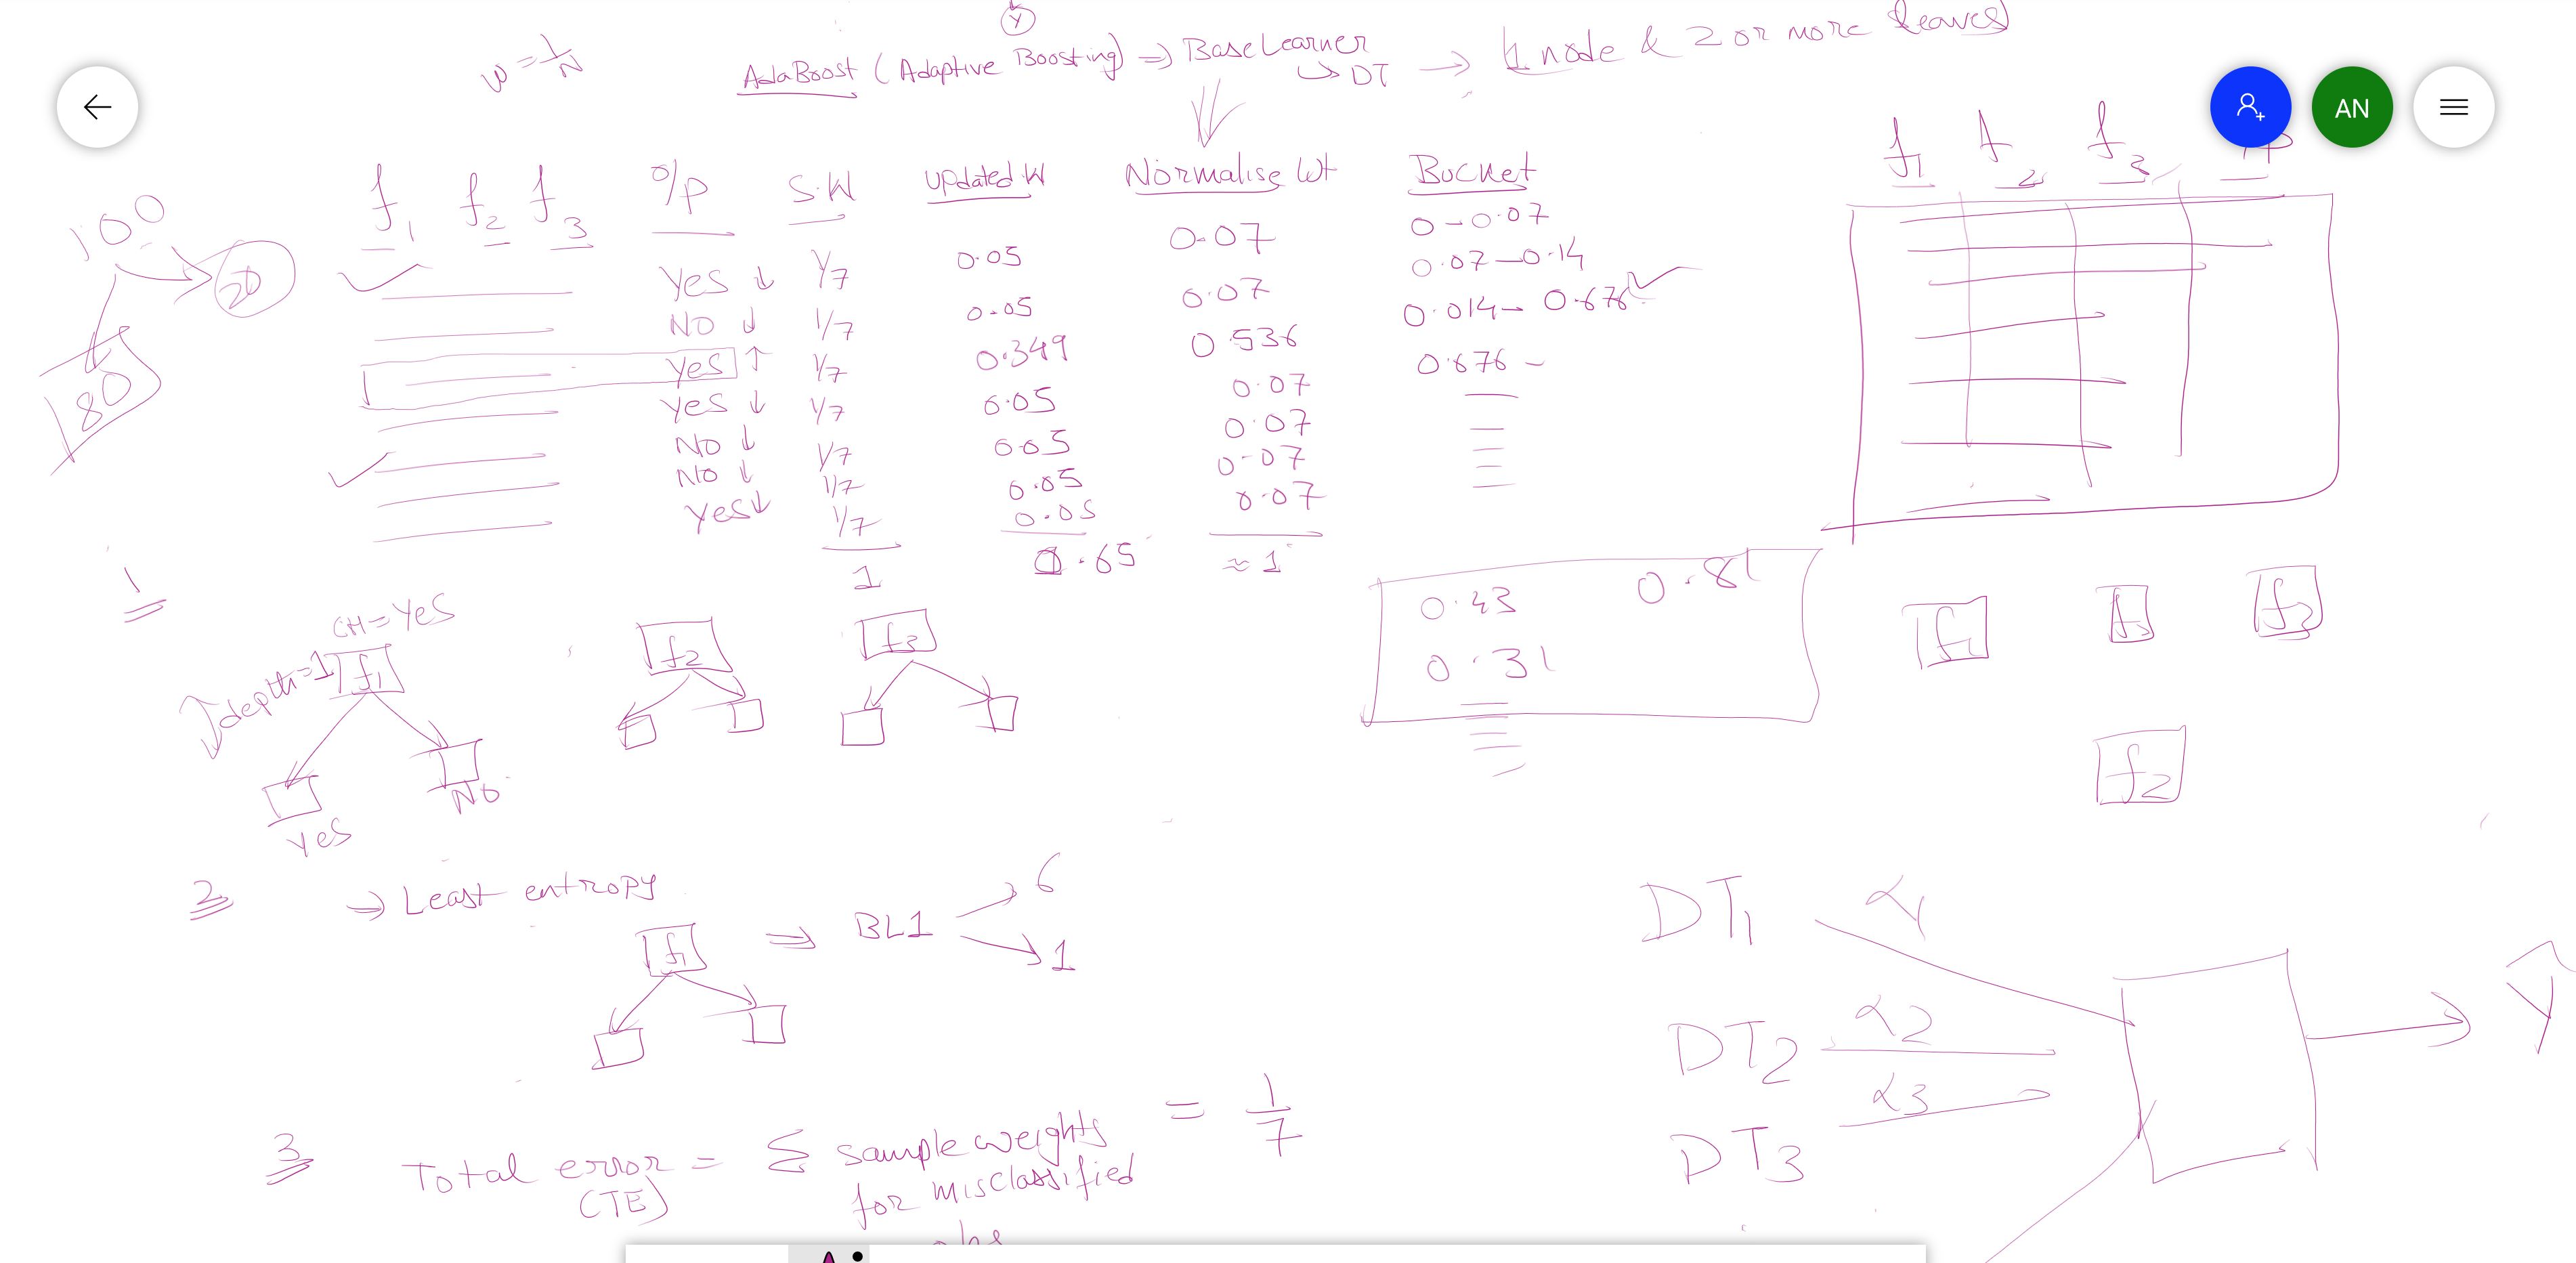 Y
w = 1/N
AdaBoost (Adaptive Boosting) ⇒ BaseLearner → 1 node & 2 or more leaves
↳ DT
AN
f1 f2 f3 O/P S.W Updated.W Normalise Wt Bucket
f1 f2 f3
100
20
80
Yes ↓ 1/7 0.05 0.07 0-0.07
NO ↓ 1/7 0.05 0.07 0.07-0.14
Yes ↑ 1/7 0.349 0.536 0.014- 0.676 ✓
Yes ↓ 1/7 0.05 0.07 0.676 -
NO ↓ 1/7 0.05 0.07
NO ↓ 1/7 0.05 0.07
Yes ↓ 1/7 0.05 0.07
1 .65 ≈ 1
0.43 0.81
0.31
1
CH = Yes
depth=1 f1 f2 f3
Yes No
f1 f3
f2
2 → Least entropy
f1 ⇒ BL1 → 6
→ 1
3 Total error (TE) = Σ sample weights for misclassified obs = 1/7
DT1 α1
DT2 α2
DT3 α3
ŷ